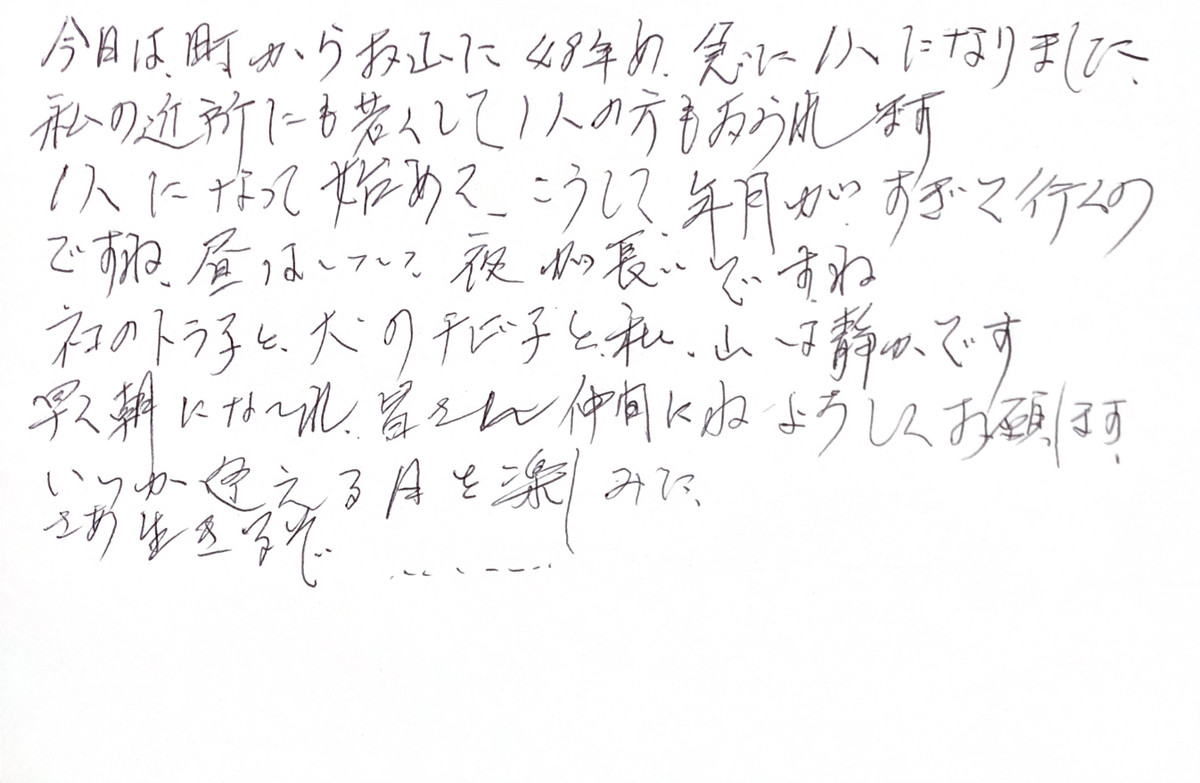 今日は、町からお山に48年め、急に1人になりました、
私の近所にも若くして1人の方もおられます
1人になって始めて、こうして、年月が、すぎて行くの
ですね、昼はいいいて、夜が長いですね
ネコのトラ子と、犬のチビ子と、私、山は静かです
早く朝になーれ、皆さん仲間にね よろしくお願います、
いつか逢える月を楽しみに、
さあ生きるぞ ………